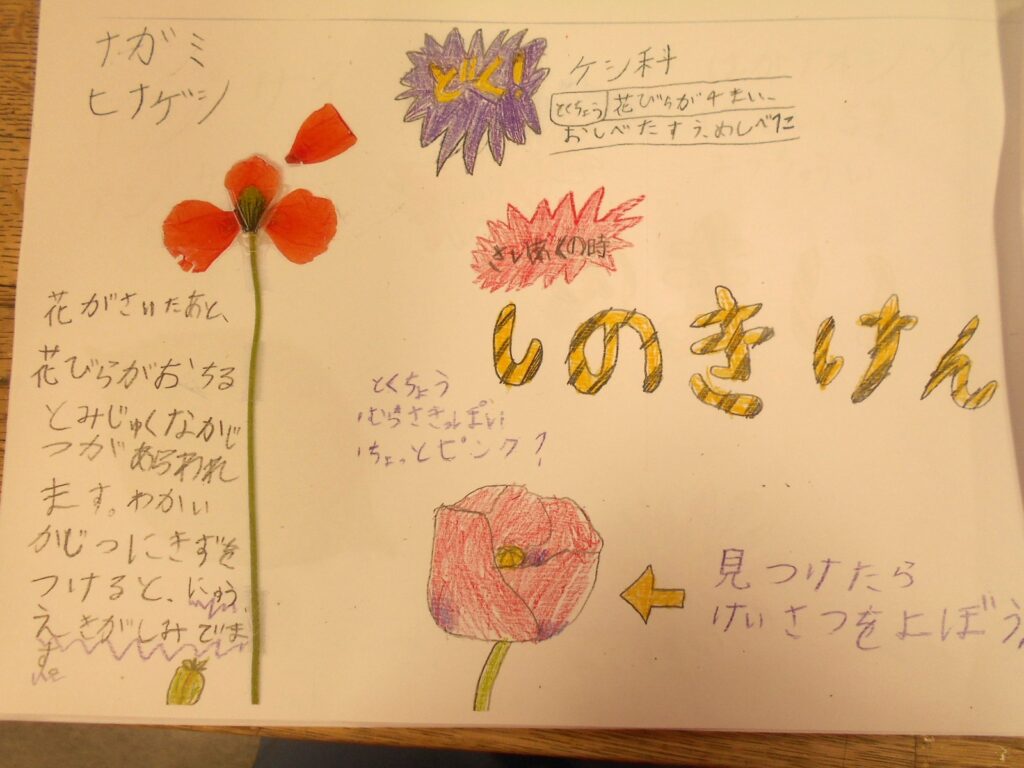 ナガミ
ヒナゲシ
どく!
ケシ科
とくちょう 花びらが4まい、
おしべたすう、めしべ1こ
さいあくの時
しのきけん
花がさいたあと、
花びらがおちる
とみじゅくなかじ
つがあらわれ
ます。わかい
かじつにきずを
つけると、にゅう
えきがしみでま
す。
とくちょう
むらさきっぽい
ちょっとピンク?
見つけたら
けいさつをよぼう